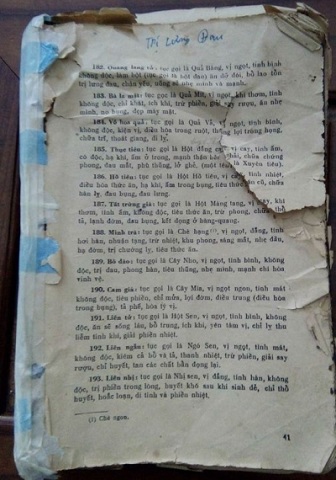 182. Quảng lang tử: tục gọi là Quả Bàng, vị ngọt, tính bình
không độc, làm bột
trị lưng đau, chùn yếu, uống sẽ nhẹ mình và mạnh.
183. Ba la mật: tục gọi là Quả Mít, vị ngọt, khí thơm, tính
không độc, chỉ khát, ích khí, trừ phiền, giải say rượu, ăn nhẹ
mình, no bụng, đẹp mày mặt.
184. Vô hoa quả: tục gọi là Quả Vả, vị ngọt, tính bình,
không độc, kiện vị, điều hòa trung ruột, thông lợi trong bụng,
chữa trĩ, thoát giang, đi lỵ.
185. Thục tiêu: tục gọi là Hột đắng cay, vị cay, tính ấm,
có độc, hạ khí, ấm ở trong, mạnh thận khí chữa chứng
phong, đau mắt, phù thũng, lở ghẻ. (một tên là Xuyên tiêu).
186. Hồ tiêu: tục gọi là Hột Hồ tiêu, vị cay, tính nhiệt,
điều hòa thức ăn, hạ khí, ấm trong bụng, tiêu thức ăn cũ, chữa
hàn lỵ, đau bụng, đau lưng.
187. Tất trừng già: tục gọi là Hột Màng tang, vị cay, khí
thơm, tính ấm, không độc, tiêu thức ăn, trừ phong, chữa thổ
tả, lạnh đờm, đau bụng, kết đọng ở bàng-quang.
188. Minh trà: tục gọi là Chè bạng (¹), vị ngọt, đắng, tính
hơi hàn, nhuận tạng, trừ nhiệt, khu phong, sáng mắt, nhẹ đầu,
hạ đờm, trị chướng lỵ, tiêu thức ăn.
189. Bồ đào: tục gọi là Cây Nho, vị ngọt, tính bình, không
độc, trị đau, phong hàn, tiêu thũng, nhẹ mình, mạnh chí hòa
vinh vệ.
190. Cam giá: tục gọi là Cây Mía, vị ngọt ngon, tính mát
không độc, tiêu phiền, chỉ mửa, lợi đờm, điều trung (điều hòa
trung bụng), tả phế, hòa tỳ vị.
191. Liên tử: tục gọi là Hột Sen, vị ngọt, tính bình, không
độc, ăn sẽ sống lâu, bổ trung, ích khí, yên tâm vị, chỉ lỵ thu
liễm tinh khí, giải phiền nhiệt.
192. Liên ngẫu: tục gọi là Ngó Sen, vị ngọt, tính mát,
không độc, kiêm cả bổ và tả, thanh nhiệt, trừ phiền, giải say
rượu, chỉ huyết, tan các chất hẳn đọng lại.
193. Liên nhị: tục gọi là Nhị sen, vị đắng, tính hàn, không
độc, trị phiền trong lòng, huyết khô sau khi sinh đẻ, chỉ thổ
huyết, hoắc loạn, di tinh và phiền nhiệt.
(¹) Chè ngon.
41